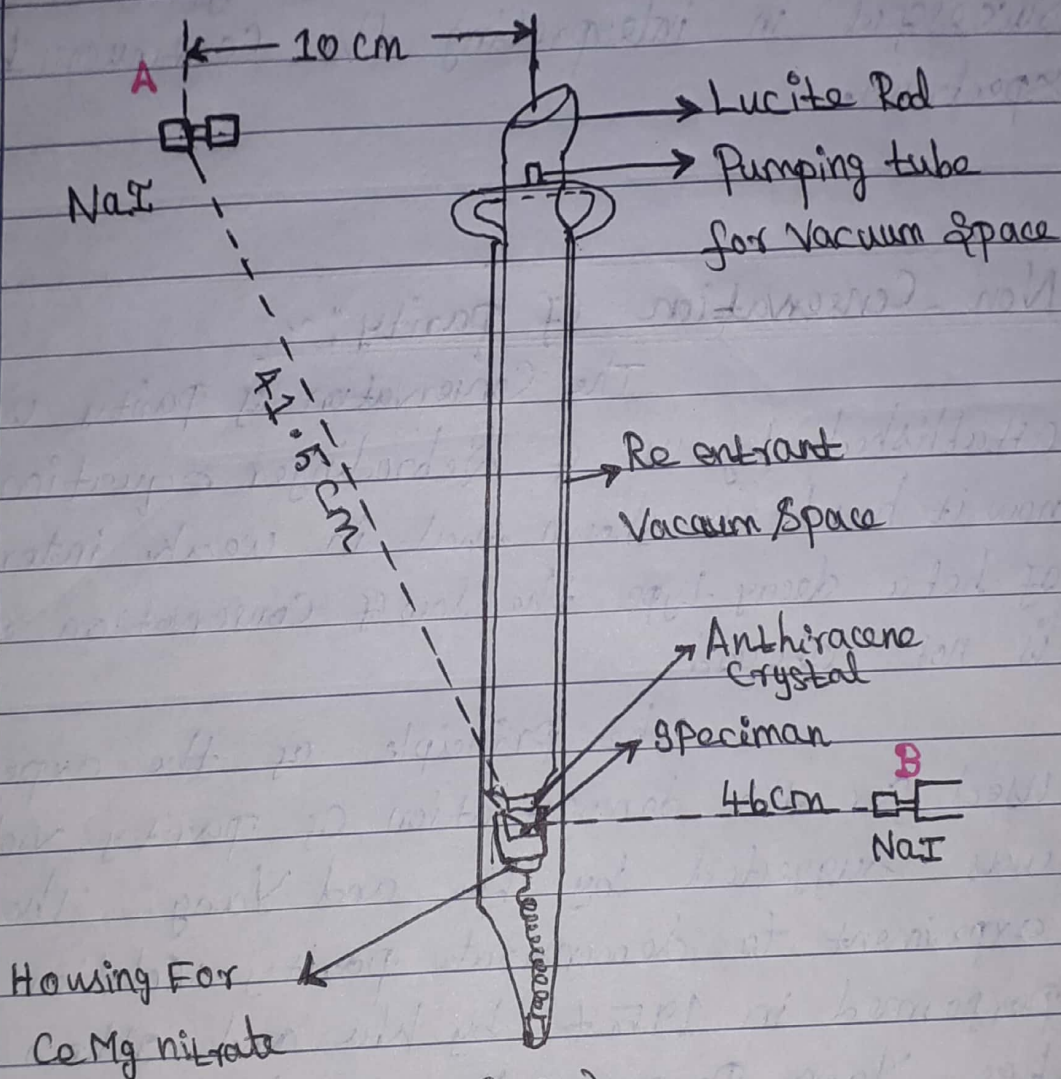 10 cm
A
Lucite Rod
Pumping tube
for Vacuum Space
NaI
47.5 cm
Re entrant
Vacuum Space
Anthiracene
Crystal
Speciman
B
46cm
NaI
Housing For
CeMg nitrate